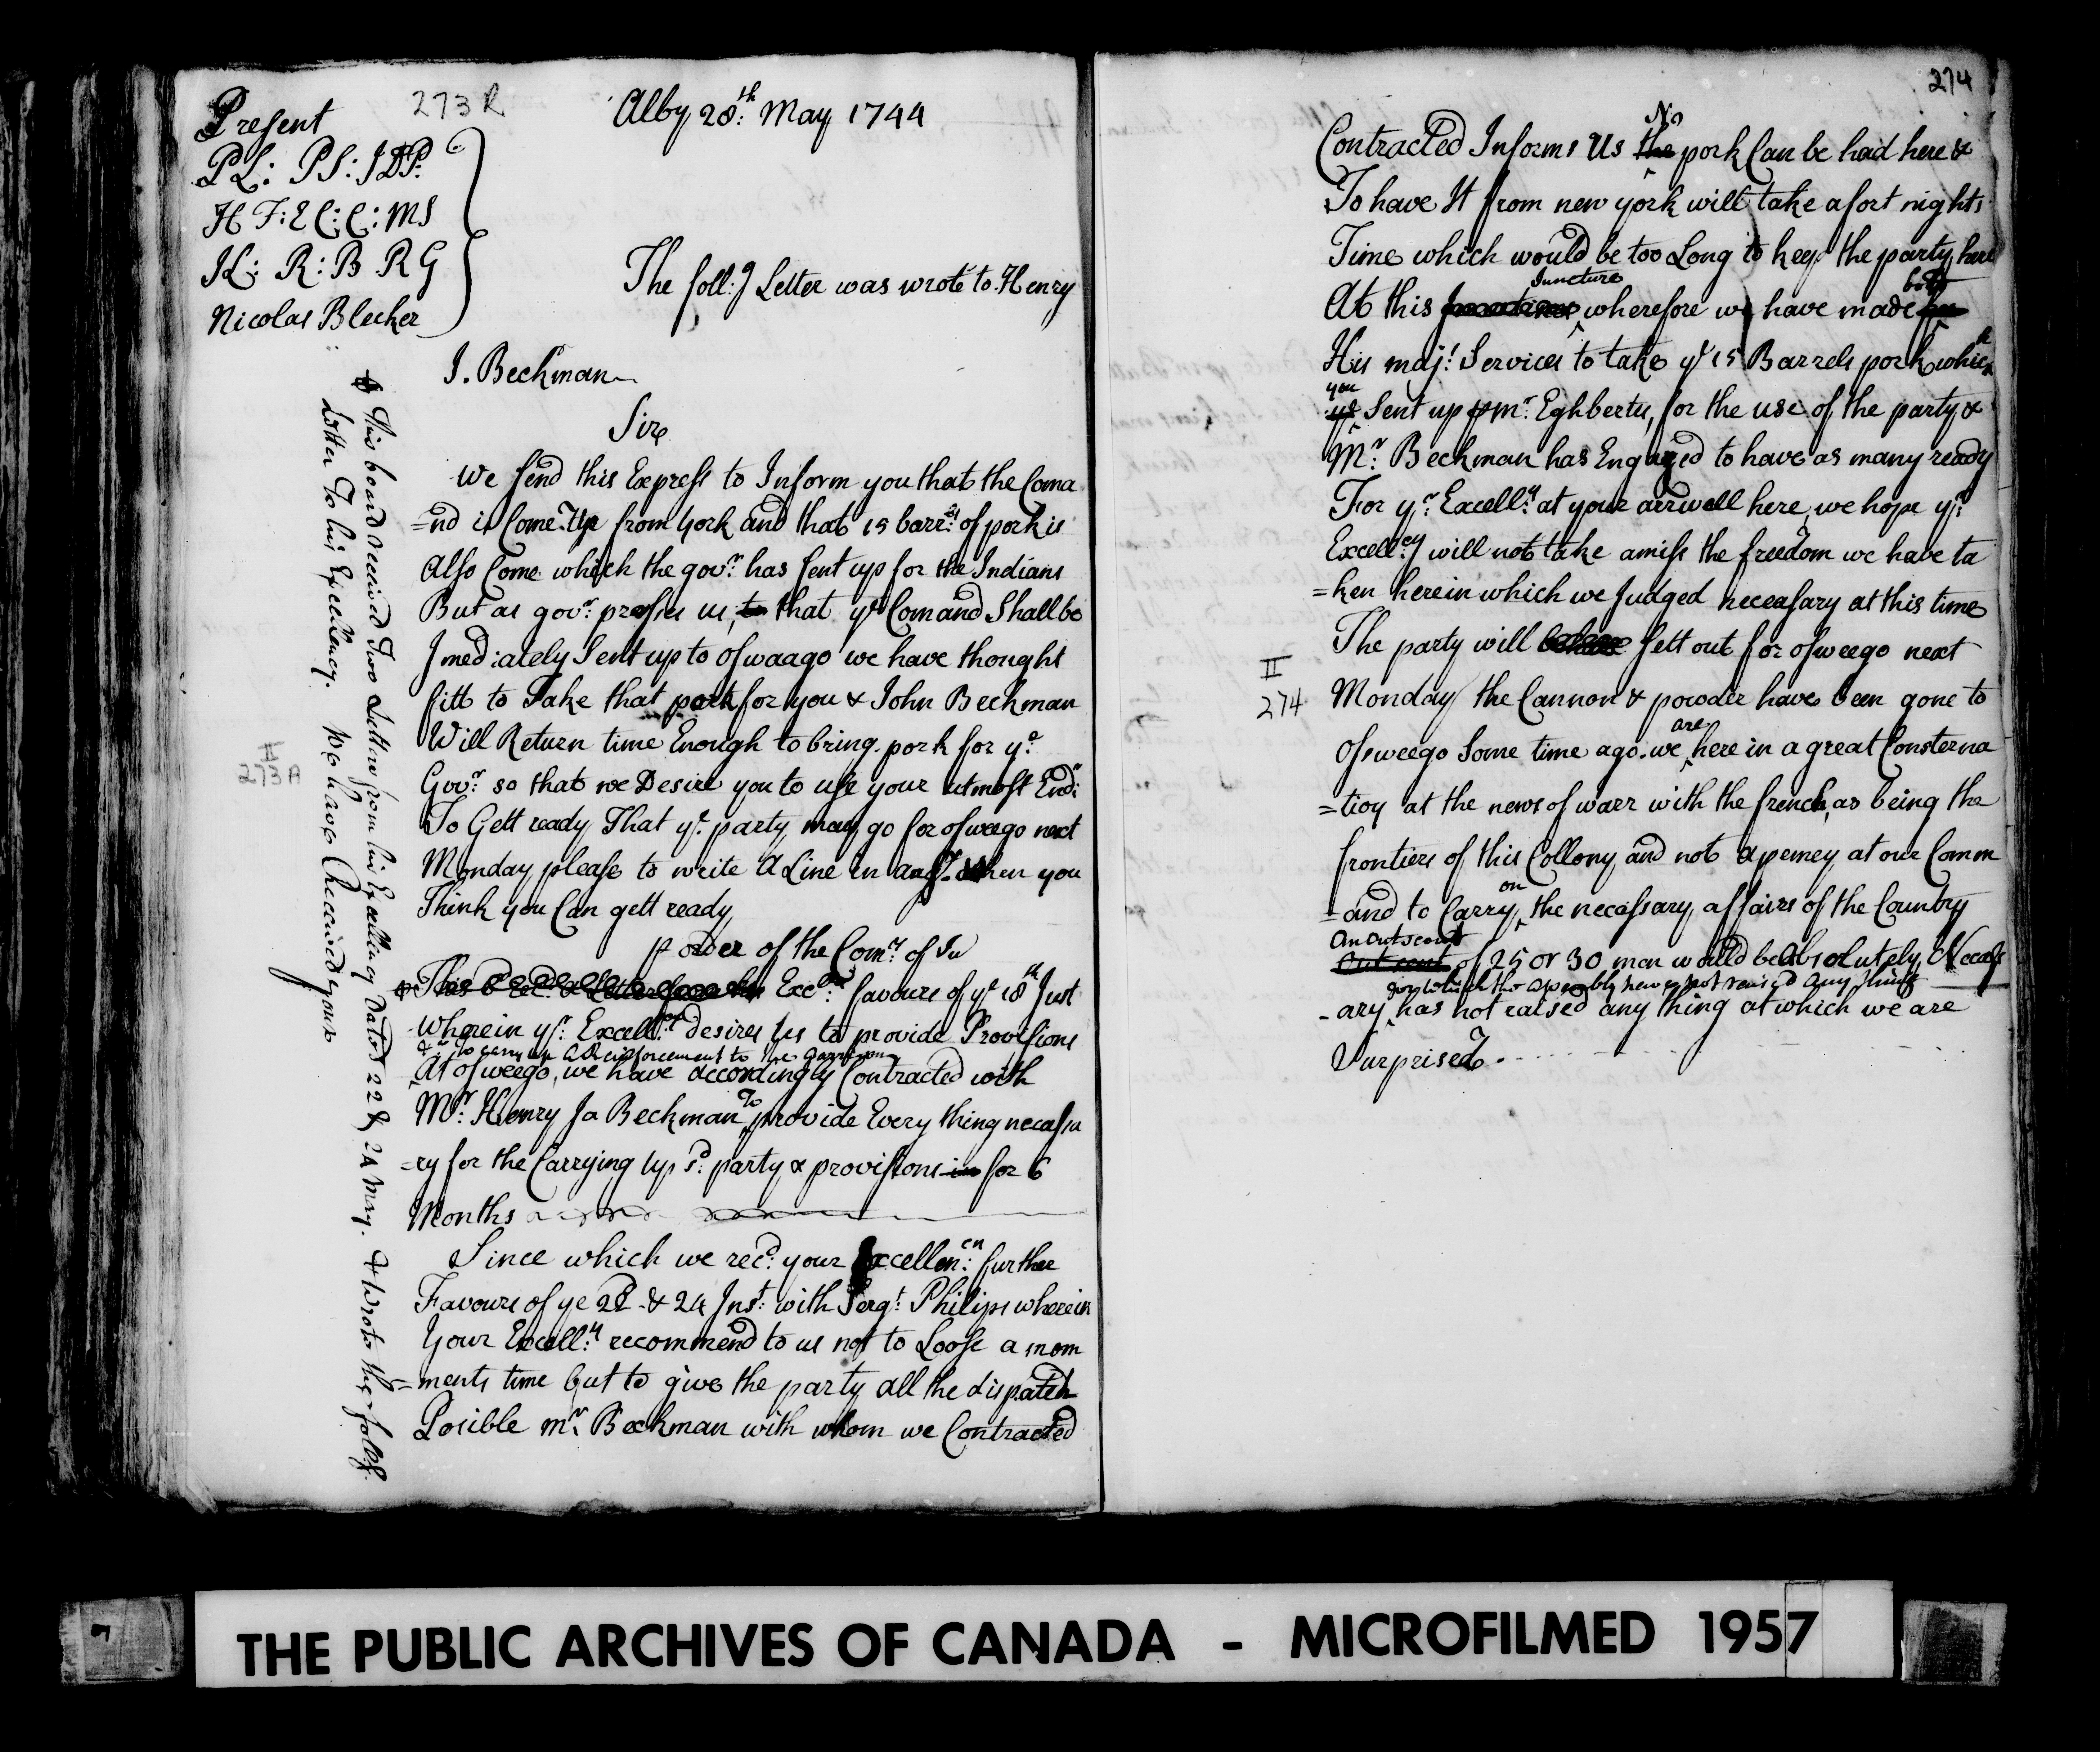 273 R
Present
Alby 28:th May 1744
PL: PS: JDP:
H F: E C: C: MS
JL: R: B RG
Nicolas Blecker
The foll:g Letter was wrote to Henry
J. Beekman
Sir
We send this Express to Inform you that the Coma
=nd is Come Up from york and that 15 barr:ls of pork is
Also Come which the gov:r has sent up for the Indians
But as gov:r presses us, to that ye Comand Shall be
Jmediately Sent up to oswaago we have thought
fitt to Take that pork for you & John Beekman
Will Return time Enough to bring pork for ye
Gov:r so that we Desire you to use your utmost End:r
To Gett ready That ye party may go for osweego next
Monday please to write A Line in ansr. when you
Think you Can gett ready
p order of the Com:rs of In
This B Rec:d a Letter from his Exc:ys favours of ye 18th Just
Wherein yr. Excell:cy desires us to provide Provisions
& to carry up a Reinforcement to the garrison
At osweego, we have accordingly Contracted with
Mr. Henry Ja Beekman To provide Every thing necassa
=ry for the Carrying up sd. party & provisions in for 6
Months
Since which we rec:d your Excellen:cy further
Favours of ye 22 & 24 Jnst: with Serg:t Philips wherein
Your Excell:y recommend to us not to Loose a mom
=ments time but to give the party all the dispatch
Posible mr. Beekman with whom we Contracted
This board received Two Letters from his Excellency Dated 22 & 24 May. & Wrote the follg.
Letter To his Excellency. We have Received your
II
273 A
274
Contracted Informs Us the No pork Can be had here &
To have It from new york will take a fort nights
Time which would be too Long to keep the party here
At this Juncture wherefore we have made bold
His maj:s Services to take ye 15 Barrels pork which
ye you Sent up p mr. Eghbertse, for the use of the party &
Mr. Beekman has Engaged to have as many ready
For yr. Excell:y at your arrivall here, we hope yr.
Excell:cy will not take amiss the freedom we have ta
=ken herein which we Judged necessary at this time
The party will sett out for osweego next
II
274
Monday the Cannon & powder have been gone to
Osweego Some time ago. we are here in a great Consterna
=tioy at the news of warr with the french, as being the
frontiers of this Collony, and not a penney at our Comm
=and to Carry on the necassary affairs of the Country
An outscout
Out scout of 25 or 30 men would be Absolutely Necess
for which the assembly have not raised any thing
-ary has not raised any thing at which we are
Surprised.
THE PUBLIC ARCHIVES OF CANADA - MICROFILMED 1957